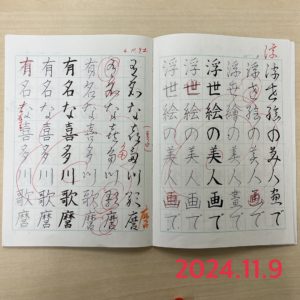 浮世絵の美人画で
浮世絵の美人画で
浮世絵の美人画で
浮世絵の美人画で
浮世絵の美人画で
浮世絵の美人画で
有名な喜多川歌麿
有名な喜多川歌麿
有名な喜多川歌麿
有名な喜多川歌麿
有名な喜多川歌麿
有名な喜多川歌麿
2024.11.9